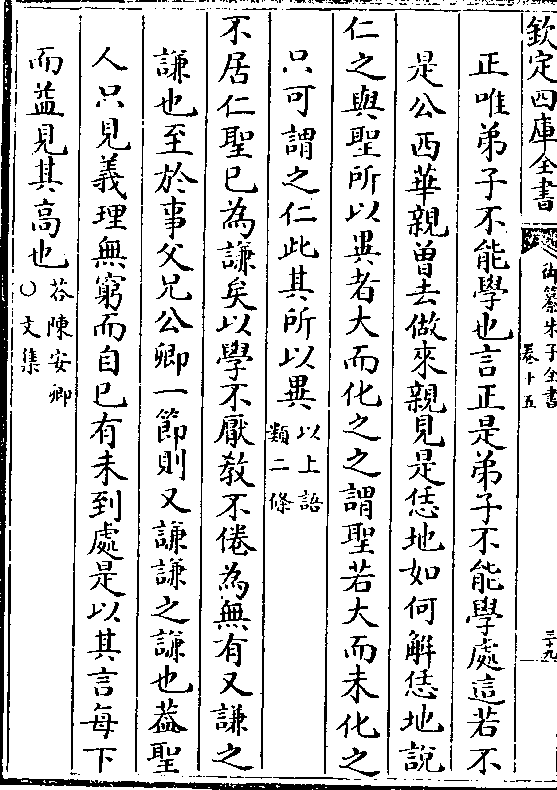 欽定四庫全書
御纂朱子全書
卷十五
三十九
正唯弟子不能學也言正是弟子不能學處這若不
是公西華親曾去做來親見是恁地如何解恁地說
仁之與聖所以異者大而化之之謂聖若大而未化之
只可謂之仁此其所以異以上語
類二條
不居仁聖已為謙矣以學不厭教不倦為無有又謙之
謙也至於事父兄公卿一節則又謙謙之謙也葢聖
人只見義理無窮而自已有未到處是以其言每下
而益見其高也答陳安卿
○文集